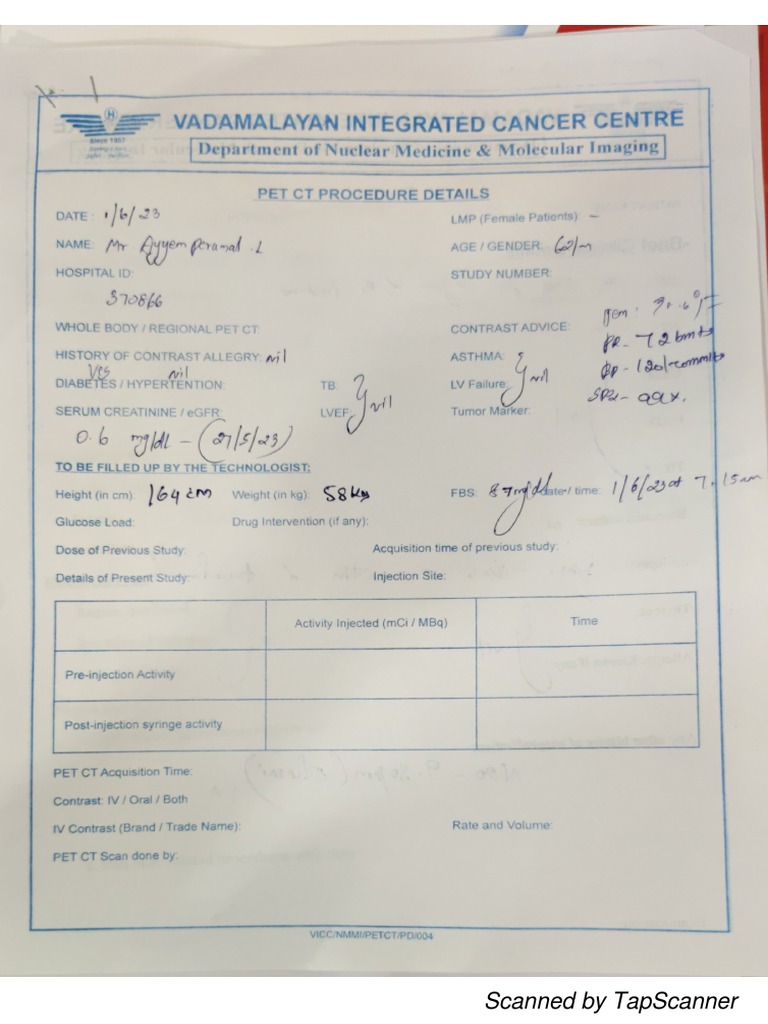 VADAMALAYAN INTEGRATED CANCER CENTRE
Since 1957
Department of Nuclear Medicine & Molecular Imaging
PET CT PROCEDURE DETAILS
DATE: 1/6/23 LMP (Female Patients) -
NAME: Mr Ayyem Perumal .L AGE / GENDER: 62/m
HOSPITAL ID: STUDY NUMBER:
370866
WHOLE BODY / REGIONAL PET CT: CONTRAST ADVICE:
PR - 72 bmts
HISTORY OF CONTRAST ALLEGRY: nil ASTHMA: BP - 120/
yes nil nil
DIABETES / HYPERTENTION: TB: LV Failure: SPO2 - 99%.
nil
SERUM CREATININE / eGFR: LVEF: Tumor Marker:
0.6 mg/dl - (27/5/23)
TO BE FILLED UP BY THE TECHNOLOGIST:
Height (in cm): 164 cm Weight (in kg): 58 kg FBS: 87mg/dl date / time: 1/6/23 at 7.15am
Glucose Load: Drug Intervention (if any):
Dose of Previous Study: Acquisition time of previous study:
Details of Present Study: Injection Site:
Activity Injected (mCi / MBq) Time
Pre-injection Activity
Post-injection syringe activity
PET CT Acquisition Time:
Contrast: IV / Oral / Both
IV Contrast (Brand / Trade Name): Rate and Volume:
PET CT Scan done by:
VICC/NMMI/PETCT/PD/004
Scanned by TapScanner